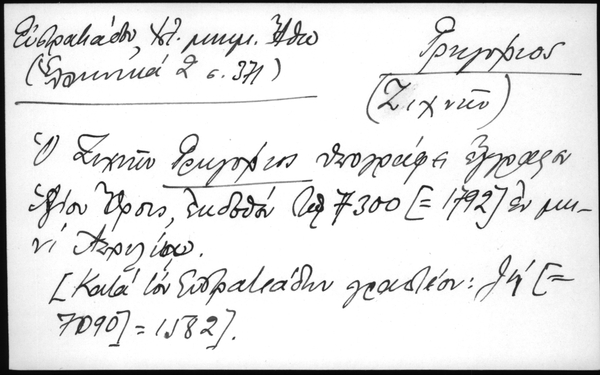 Εὐστρατιάδου, Ἱστ. μνημ. Ἄθω
(Ἑλληνικά 2 σ. 371)
Γρηγόριος
(Ζιχνῶν)
Ὁ Ζιχνῶν Γρηγόριος ὑπογράφει ἔγγραφον
Ἁγίου Ὄρους, ἐκδοθὲν 7300 [= 1792] ἐν μη-
νί Ἀπριλίῳ.
[Κατά τὸν Εὐστρατιάδην γραπτέον: [=
7090] = 1582].